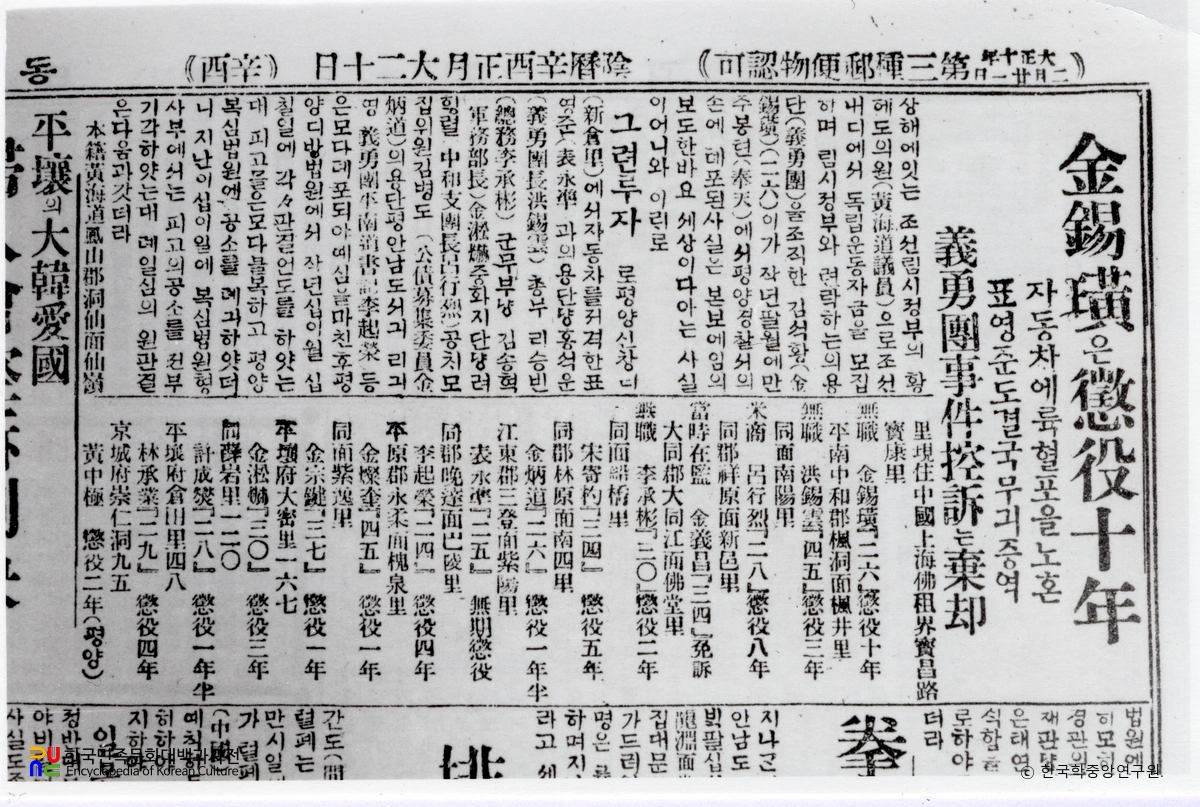 (大正十年二月廿一日第三種郵便物認可)
陰曆辛酉正月大二十日
(辛酉)
동
金錫璜은懲役十年
자동차에륙혈포을노혼
표영준도결국무긔증역
義勇團事件控訴는棄却
상해에잇는 조선림시정부의 황
해도의원(黃海道議員)으로조선
내디에서 독립운동자금을 모집
하며 림시정부와 련락하는의용
단(義勇團)을조직한 김석황(金
錫璜)(二六)이가 작년팔월에만
주봉텬(奉天)에서평양경찰서의
손에 톄포된사실은 본보에임의
보도한바요 세상이다아는 사실
이어니와 이런로
그련루자 로평양신창디
(新倉里)에서자동차를저격한표
영준(表永準) 과의용단당홍석운
(義勇團長洪錫雲) 총부 리승빈
(總務李承彬) 군무부당 김송혁
軍務部長)金淞爀중화지단당려
힝렬 中和支團長呂行烈)공채모
집위원김병도 (公債募集委員金
炳道)의용단평안남도서긔 리긔
영 義勇團平南道書記李起榮 등
은모다톄포되야예심을마친후평
양디방법원에서 작년십이월 십
칠일에 각々판결언도를 하얏는
대 피고들은모다불복하고 평양
복심법원에 공소를 뎨긔하얏더
니 지난이십이일에 복심법원형
사부에서는 피고의공소를 전부
기각하얏는대 뎨일심의 원판결
은다음과갓더라
本籍黃海道鳳山郡洞仙面仙嶺
里現住中國上海佛租界寶昌路
寶康里
無職 金錫璜『二六』懲役十年
平南中和郡楓洞面楓井里
無職 洪錫雲『四五』懲役三年
同面南陽里
米商 呂行烈『二八』懲役八年
同郡祥原面新邑里
當時在監 金義昌『三四』免訴
大同郡大同江面佛堂里
無職 李承彬『三〇』懲役二年
同面船橋里
宋寄杓『三四』 懲役五年
同郡林原面南四里
金炳道『二六』 懲役一年半
江東郡三登面紫陽里
表永準『二五』 無期懲役
同郡晩達面巴陵里
李起榮『二四』 懲役四年
平原郡永柔面槐泉里
金燦奎『四五』 懲役一年
同面紫逸里
金宗鍵『三七』 懲役一年
平壤府大密里一六七
金淞爀『三〇』 懲役三年
同薛岩里一二〇
許成燮『二八』 懲役一年半
平壤府倉田里四八
林承業『二九』 懲役四年
京城府崇仁洞九五
黃中極 懲役二年(평양)
平壤의大韓愛國
법원에
히모히
경관의
재판당
은태연
식함을
로하야
더라
지나근
안남도
빗팔십
龍淵面
집대문
가드러
명은 를
하며지
라고 세
간도(間
텰폐는
만시일
가 텰폐
한국민족문화대백과사전
Encyclopedia of Korean Culture
ⓒ 한국학중앙연구원.